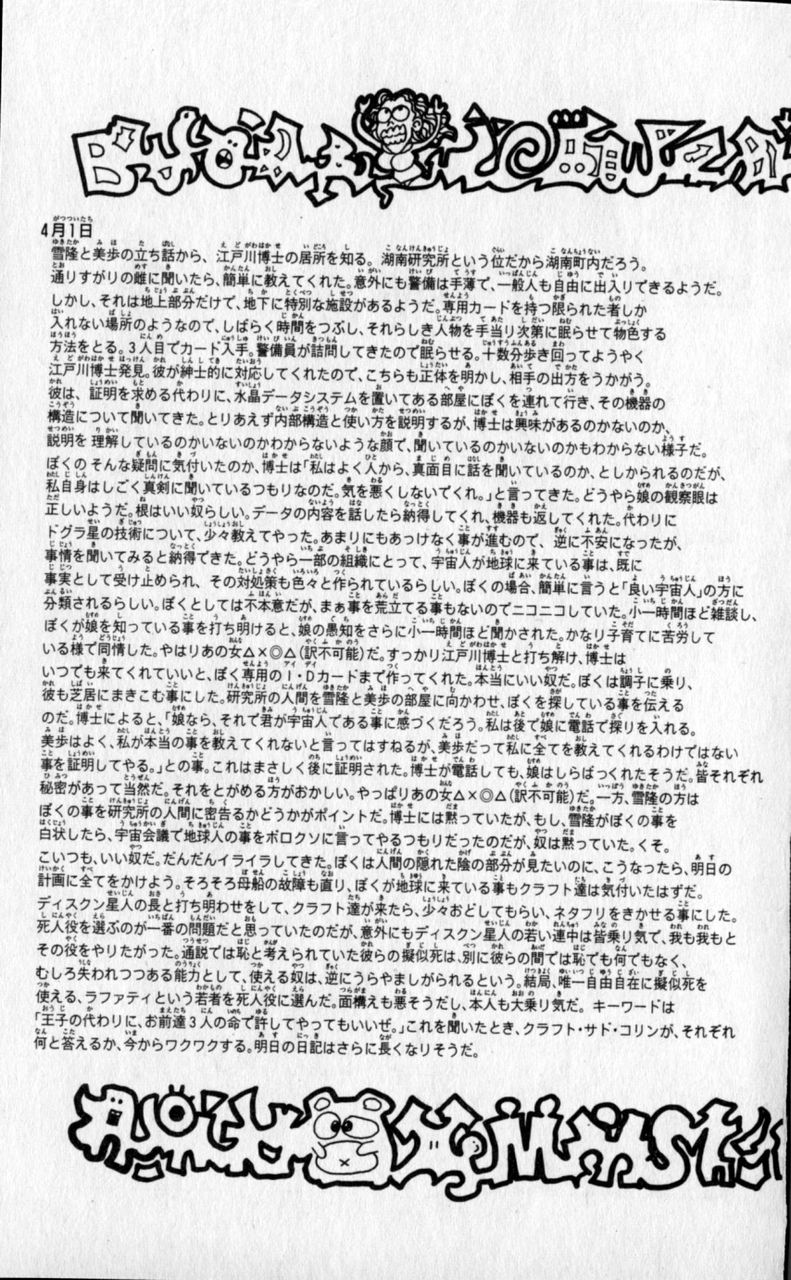 4月1日
雪隆と美歩の立ち話から、江戸川博士の居所を知る。湖南研究所という位だから湖南町内だろう。
通りすがりの雌に聞いたら、簡単に教えてくれた。意外にも警備は手薄で、一般人も自由に出入りできるようだ。
しかし、それは地上部分だけで、地下に特別な施設があるようだ。専用カードを持つ限られた者しか
入れない場所のようなので、しばらく時間をつぶし、それらしき人物を手当り次第に眠らせて物色する
方法をとる。3人目でカード入手。警備員が詰問してきたので眠らせる。十数分歩き回ってようやく
江戸川博士発見。彼が紳士的に対応してくれたので、こちらも正体を明かし、相手の出方をうかがう。
彼は、証明を求める代わりに、水晶データシステムを置いてある部屋にぼくを連れて行き、その機器の
構造について聞いてきた。とりあえず内部構造と使い方を説明するが、博士は興味があるのかないのか、
説明を理解しているのかいないのかわからないような顔で、聞いているのかいないのかもわからない様子だ。
ぼくのそんな疑問に気付いたのか、博士は「私はよく人から、真面目に話を聞いているのか、としかられるのだが、
私自身はしごく真剣に聞いているつもりなのだ。気を悪くしないでくれ。」と言ってきた。どうやら娘の観察眼は
正しいようだ。根はいい奴らしい。データの内容を話したら納得してくれ、機器も返してくれた。代わりに
ドグラ星の技術について、少々教えてやった。あまりにもあっけなく事が進むので、逆に不安になったが、
事情を聞いてみると納得できた。どうやら一部の組織にとって、宇宙人が地球に来ている事は、既に
事実として受け止められ、その対処策も色々と作られているらしい。ぼくの場合、簡単に言うと「良い宇宙人」の方に
分類されるらしい。ぼくとしては不本意だが、まぁ事を荒立てる事もないのでニコニコしていた。小一時間ほど雑談し、
ぼくが娘を知っている事を打ち明けると、娘の愚知をさらに小一時間ほど聞かされた。かなり子育てに苦労して
いる様で同情した。やはりあの女△×◎△(訳不可能)だ。すっかり江戸川博士と打ち解け、博士は
いつでも来てくれていいと、ぼく専用のI・Dカードまで作ってくれた。本当にいい奴だ。ぼくは調子に乗り、
彼も芝居にまきこむ事にした。研究所の人間を雪隆と美歩の部屋に向かわせ、ぼくを探している事を伝える
のだ。博士によると、「娘なら、それで君が宇宙人である事に感づくだろう。私は後で娘に電話で探りを入れる。
美歩はよく、私が本当の事を教えてくれないと言ってはすねるが、美歩だって私に全てを教えてくれるわけではない
事を証明してやる。」との事。これはまさしく後に証明された。博士が電話しても、娘はしらばっくれたそうだ。皆それぞれ
秘密があって当然だ。それをとがめる方がおかしい。やっぱりあの女△×◎△(訳不可能)だ。一方、雪隆の方は
ぼくの事を研究所の人間に密告るかどうかがポイントだ。博士には黙っていたが、もし、雪隆がぼくの事を
白状したら、宇宙会議で地球人の事をボロクソに言ってやるつもりだったのだが、奴は黙っていた。くそ。
こいつも、いい奴だ。だんだんイライラしてきた。ぼくは人間の隠れた陰の部分が見たいのに、こうなったら、明日の
計画に全てをかけよう。そろそろ母船の故障も直り、ぼくが地球に来ている事もクラフト達は気付いたはずだ。
ディスクン星人の長と打ち明わせをして、クラフト達が来たら、少々おどしてもらい、ネタフリをきかせる事にした。
死人役を選ぶのが一番の問題だと思っていたのだが、意外にもディスクン星人の若い連中は皆乗り気で、我も我もと
その役をやりたがった。通説では恥と考えられていた彼らの擬似死は、別に彼らの間では恥でも何でもなく、
むしろ失われつつある能力として、使える奴は、逆にうらやましがられるという。結局、唯一自由自在に擬似死を
使える、ラファティという若者を死人役に選んだ。面構えも悪そうだし、本人も大乗り気だ。キーワードは
「王子の代わりに、お前達3人の命で許してやってもいいぜ。」これを聞いたとき、クラフト・サド・コリンが、それぞれ
何と答えるか、今からワクワクする。明日の日記はさらに長くなりそうだ。